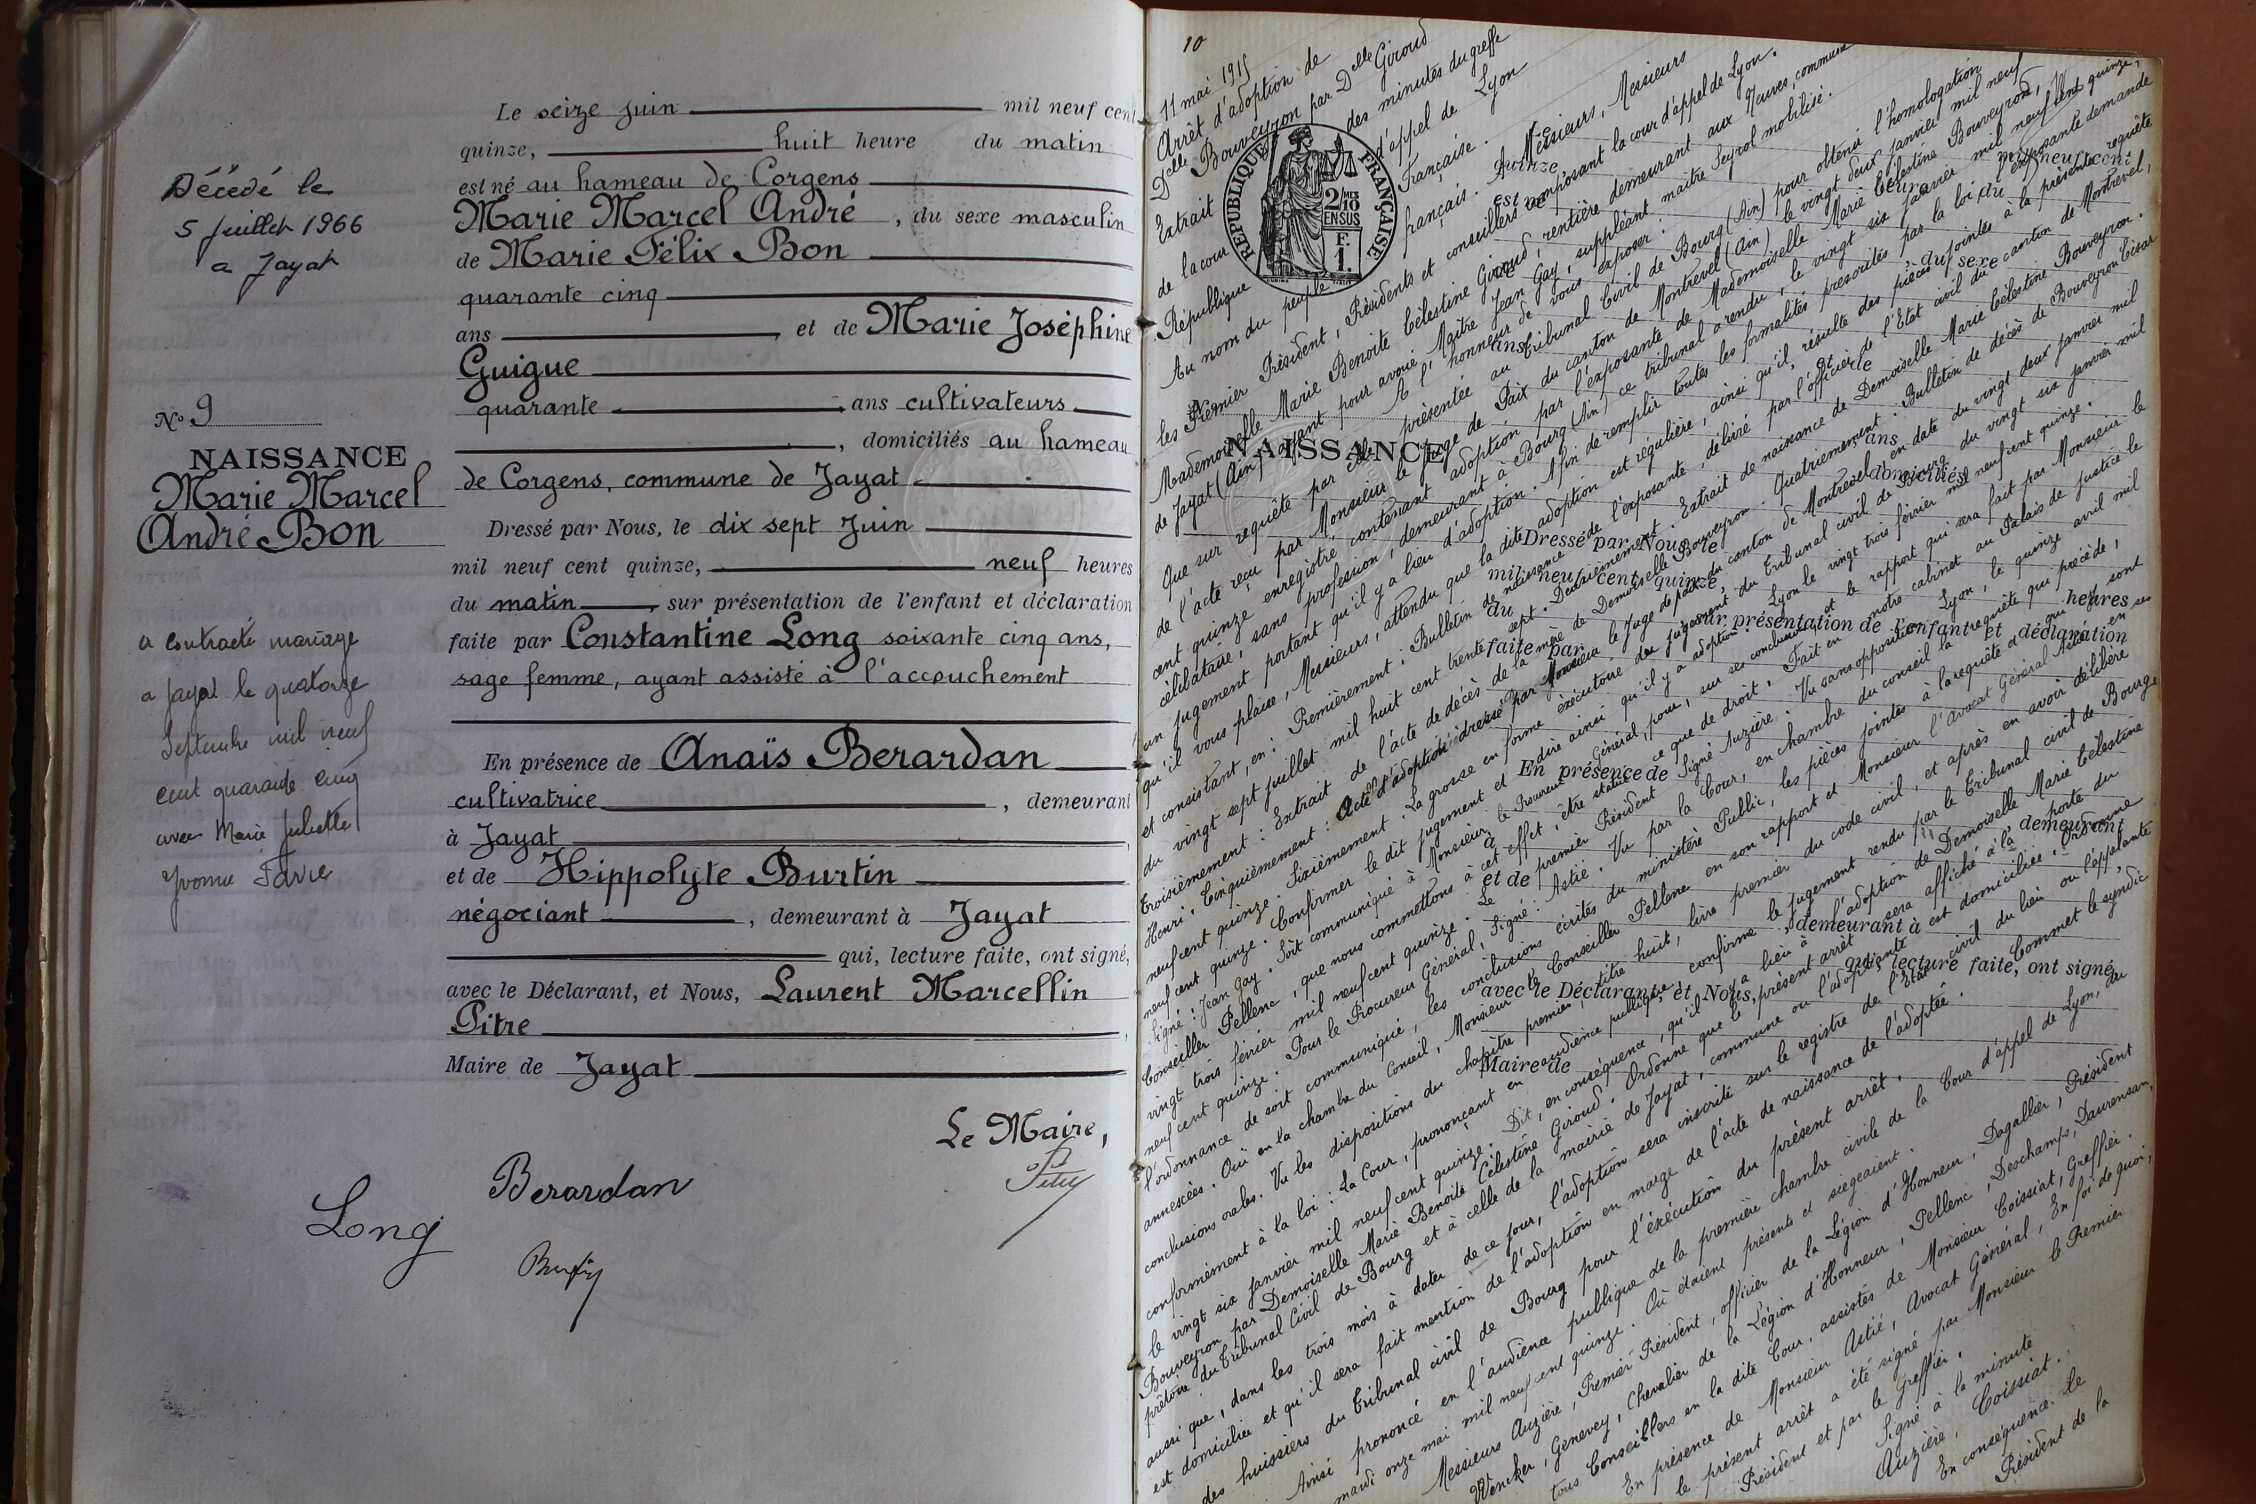 Le seize juin mil neuf cent
quinze, huit heure du matin
est né au hameau de Corgens
Marie Marcel André, du sexe masculin
de Marie Félix Bon
quarante cinq
ans, et de Marie Joséphine
Guigue
quarante ans cultivateurs
, domiciliés au hameau
de Corgens, commune de Jayat
Dressé par Nous, le dix sept Juin
mil neuf cent quinze, neuf heures
du matin, sur présentation de l'enfant et déclaration
faite par Constantine Long soixante cinq ans,
sage femme, ayant assisté à l'accouchement
En présence de Anaïs Berardan
cultivatrice, demeurant
à Jayat,
et de Hippolyte Burtin
négociant, demeurant à Jayat
qui, lecture faite, ont signé,
avec le Déclarant, et Nous, Laurent Marcellin
Pitre,
Maire de Jayat
Le Maire,
Pitre
Berardan
Long
Burtin
Décédé le
5 juillet 1966
a Jayat
No 9
NAISSANCE
Marie Marcel
André Bon
a contracté mariage
a Jayat le quatorze
Septembre mil neuf
cent quarante cinq
avec Marie Juliette
Yvonne Favre
10
11 mai 1915
Arrêt d'adoption de
Delle Bouveyron par Delle Giroud
Extrait des minutes du greffe
de la cour d'appel de Lyon
République Française.
Au nom du peuple français. A Messieurs, Messieurs
les Premier Président, Présidents et conseillers composant la cour d'appel de Lyon.
Mademoiselle Marie Benoite Célestine Giroud, rentière demeurant aux Neuves, commune
de Jayat (Ain) ayant pour avoué Maître Jean Gay, suppléant maître Seyrol mobilisé.
A l'honneur de vous exposer:
Que sur requête par elle présentée au tribunal Civil de Bourg (Ain) pour obtenir l'homologation
de l'acte reçu par Monsieur le Juge de Paix du canton de Montrevel (Ain) le vingt deux janvier mil neuf
cent quinze enregistré, contenant adoption par l'exposante de Mademoiselle Marie Célestine Bouveyron,
célibataire, sans profession, demeurant à Bourg (Ain) ce tribunal a rendu, le vingt six janvier mil neuf cent quinze,
un jugement portant qu'il y a lieu d'adoption. Afin de remplir toutes les formalités prescrites par la loi l'exposante demande
qu'il vous plaise, Messieurs, attendu que la dite adoption est régulière, ainsi qu'il résulte des pièces jointes à la présente requête
et consistant, en: Premièrement: Bulletin de naissance de l'exposante, délivré par l'officier de l'Etat civil du canton de Montrevel,
du vingt sept juillet mil huit cent trente sept. Deuxièmement. Extrait de naissance de Demoiselle Marie Célestine Bouveyron.
Troisièmement: Extrait de l'acte de décès de la mère de Demoiselle Bouveyron. Quatrièmement. Bulletin de décès de Bouveyron César
Henri. Cinquièmement: Acte d'adoption dressé par Monsieur le Juge de paix du canton de Montrevel en date du vingt deux janvier mil
neuf cent quinze. Sixièmement. La grosse en forme exécutoire du jugement du tribunal civil de Bourg du vingt six janvier mil
neuf cent quinze. Confirmer le dit jugement et dire ainsi qu'il y a adoption. Lyon le vingt trois février mil neuf cent quinze.
Signé: Jean Gay. Soit communiqué à Monsieur le Procureur Général, pour, sur ses conclusions, et le rapport qui sera fait par Monsieur le
Conseiller Pellenc, que nous commettons à cet effet, être statué ce que de droit. Fait en notre cabinet au Palais de justice le
vingt trois février mil neuf cent quinze. Le premier Président Signé Auzière. Vu sans opposition Lyon, le quinze avril mil
neuf cent quinze. Pour le Procureur Général, Signé: Astié. Vu par la Cour, en chambre du conseil la requête qui précède,
l'ordonnance de soit communiqué, les conclusions écrites du ministère Public, les pièces jointes à la requête et qui y sont
annexées. Ouï en la chambre du Conseil, Monsieur le Conseiller Pellenc en son rapport et Monsieur l'Avocat Général Astié en ses
conclusions orales. Vu les dispositions du chapitre premier, titre huit, livre premier du code civil, et après en avoir délibéré
conformément à la loi: La Cour, prononçant en audience publique, confirme le jugement rendu par le Tribunal civil de Bourg,
le vingt six janvier mil neuf cent quinze. Dit, en conséquence, qu'il y a lieu à l'adoption de Demoiselle Marie Célestine
Bouveyron par Demoiselle Marie Benoite Célestine Giroud. Ordonne que le présent arrêt sera affiché à la porte du
prétoire du Tribunal Civil de Bourg et à celle de la mairie de Jayat, commune où l'adoptante est domiciliée. Ordonne
aussi que, dans les trois mois à dater de ce jour, l'adoption sera inscrite sur le registre de l'Etat civil du lieu où l'appelante
est domiciliée et qu'il sera fait mention de l'adoption en marge de l'acte de naissance de l'adoptée. Commet le syndic
des huissiers du Tribunal civil de Bourg pour l'éxécution du présent arrêt.
Ainsi prononcé en l'audience publique de la première chambre civile de la Cour d'appel de Lyon, du
mardi onze mai mil neuf cent quinze. Où étaient présents et siegeaient.
Messieurs Auzière, Premier Président, officier de la Légion d'Honneur, Dagallier, Président
Wencker, Genevey, Chevalier de la Légion d'Honneur, Pellenc, Deschamps, Daurensan,
tous Conseillers en la dite Cour, assistés de Monsieur Coissiat, Greffier.
En présence de Monsieur Astié, Avocat Général, En foi de quoi,
le présent arrêt a été signé par Monsieur le Premier
Président et par le Greffier.
Signé à la minute
Auzière, Coissiat.
En conséquence. Le
Président de la
RÉPUBLIQUE FRANÇAISE
2/10 EN SUS
F. 1.
No
NAISSANCE
quinze,
est né
, du sexe
de
ans, et de
ans
, domiciliés
Dressé par Nous, le
mil neuf cent quinze, heures
du, sur présentation de l'enfant et déclaration
faite par
En présence de
, demeurant
à
et de
, demeurant à
qui, lecture faite, ont signé,
avec le Déclarant, et Nous,
Maire de